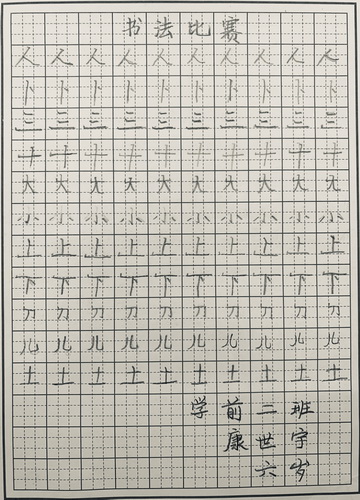 书法比赛
人人人人人人人人人人
卜卜卜卜卜卜卜卜卜卜
三三三三三三三三三三
十十十十十十十十十十
大大大大大大大大大大
小小小小小小小小小小
上上上上上上上上上上
下下下下下下下下下下
刀刀刀刀刀刀刀刀刀刀
儿儿儿儿儿儿儿儿儿儿
土土土土土土土土土土
学前二班
康世宇
六岁